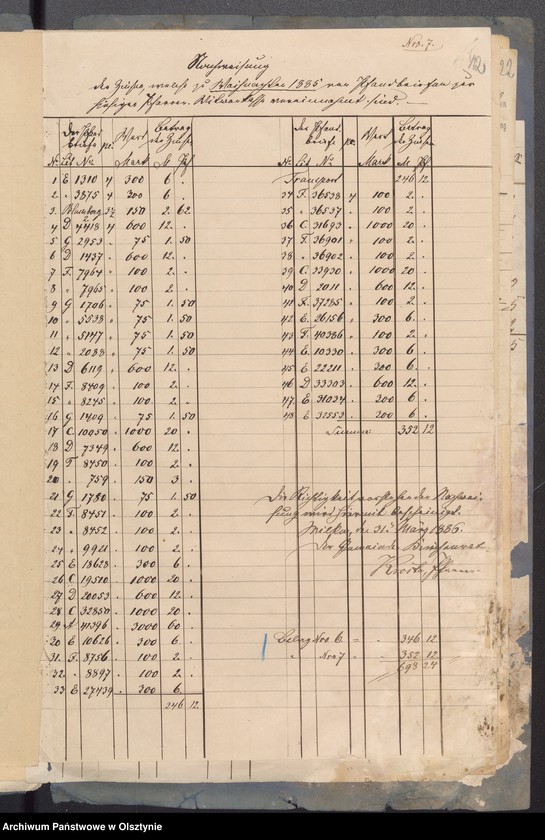 Nro. 7.
Nachweisung
der Zinsen, welche zu Weihnachten 1885 von Pfandbriefen zur
hiesigen Pfarr-Witwenkasse vereinnahmt sind.
Der Pfandbriefe Wert Betrag der Zinsen
Nr. Lit. No. pC. Mark M. Pf.
1 E 1310 4 300 6 .
2 " 3875 4 300 6 .
3. 3½ 150 2. 62
4 D 4418 4 600 12. .
5 G 2953 " 75 1. 50
6 D 1437 " 600 12. .
7 F. 7964 " 100 2. .
8 " 7965 " 100 2. .
9 G 1706 " 75 1. 50
10 " 5538 " 75 1. 50
11 " 5147 " 75 1. 50
12 " 2088 " 75 1. 50
13 D 6119 " 600 12. .
14 F. 8409 " 100 2. .
15 " 8245 " 100 2. .
16 G 1409 " 75 1. 50
17 C. 10950 " 1000 20 .
18 D 7349 " 600 12. .
19 F 8450 " 100 2. .
20 " 759 " 150 3 .
21 G 1780 " 75 1. 50
22 F. 8451 " 100 2. .
23 " 8452 " 100 2. .
24 " 9921 " 100 2. .
25 E 18628 " 300 6 .
26 C 19510 " 1000 20. .
27 D 20053 " 600 12. .
28 C 32850 " 1000 20. .
29 A 41396 " 3000 60 .
30 E 10626 " 300 6 .
31. F. 8756 " 100 2. .
32. " 8897 " 100 2. .
33 E 27439 " 300 6 .
246 12.
Der Pfandbriefe Wert Betrag der Zinsen
Nr. Lit. No. pC. Mark M. Pf.
Transport 246 12.
34 F. 36538 4 100 2. .
35 " 36537 " 100 2. .
36 C. 31693 " 1000 20 .
37 F. 36901 " 100 2. .
38 " 36902 " 100 2. .
39 C. 33930 " 1000 20 .
40 D 2011 " 600 12. .
41 F. 37285 " 100 2. .
42 E. 26156 " 300 6 .
43 F. 40386 " 100 2. .
44 E 10330 " 300 6 .
45 E 22211 " 300 6 .
46 D 33303 " 600 12. .
47 E. 31034 " 300 6 .
48 E. 32553 " 300 6 .
Summe: 352 12
Die Richtigkeit vorstehender Nachwei-
sung wird hiermit bescheinigt.
den 31. März 1886.
Der Gemeinde Kirchenrat
Pfarrer.
Belag Nro 6. = " 346 12.
" Nro 7 " 352 12.
698 24
Archiwum Państwowe w Olsztynie